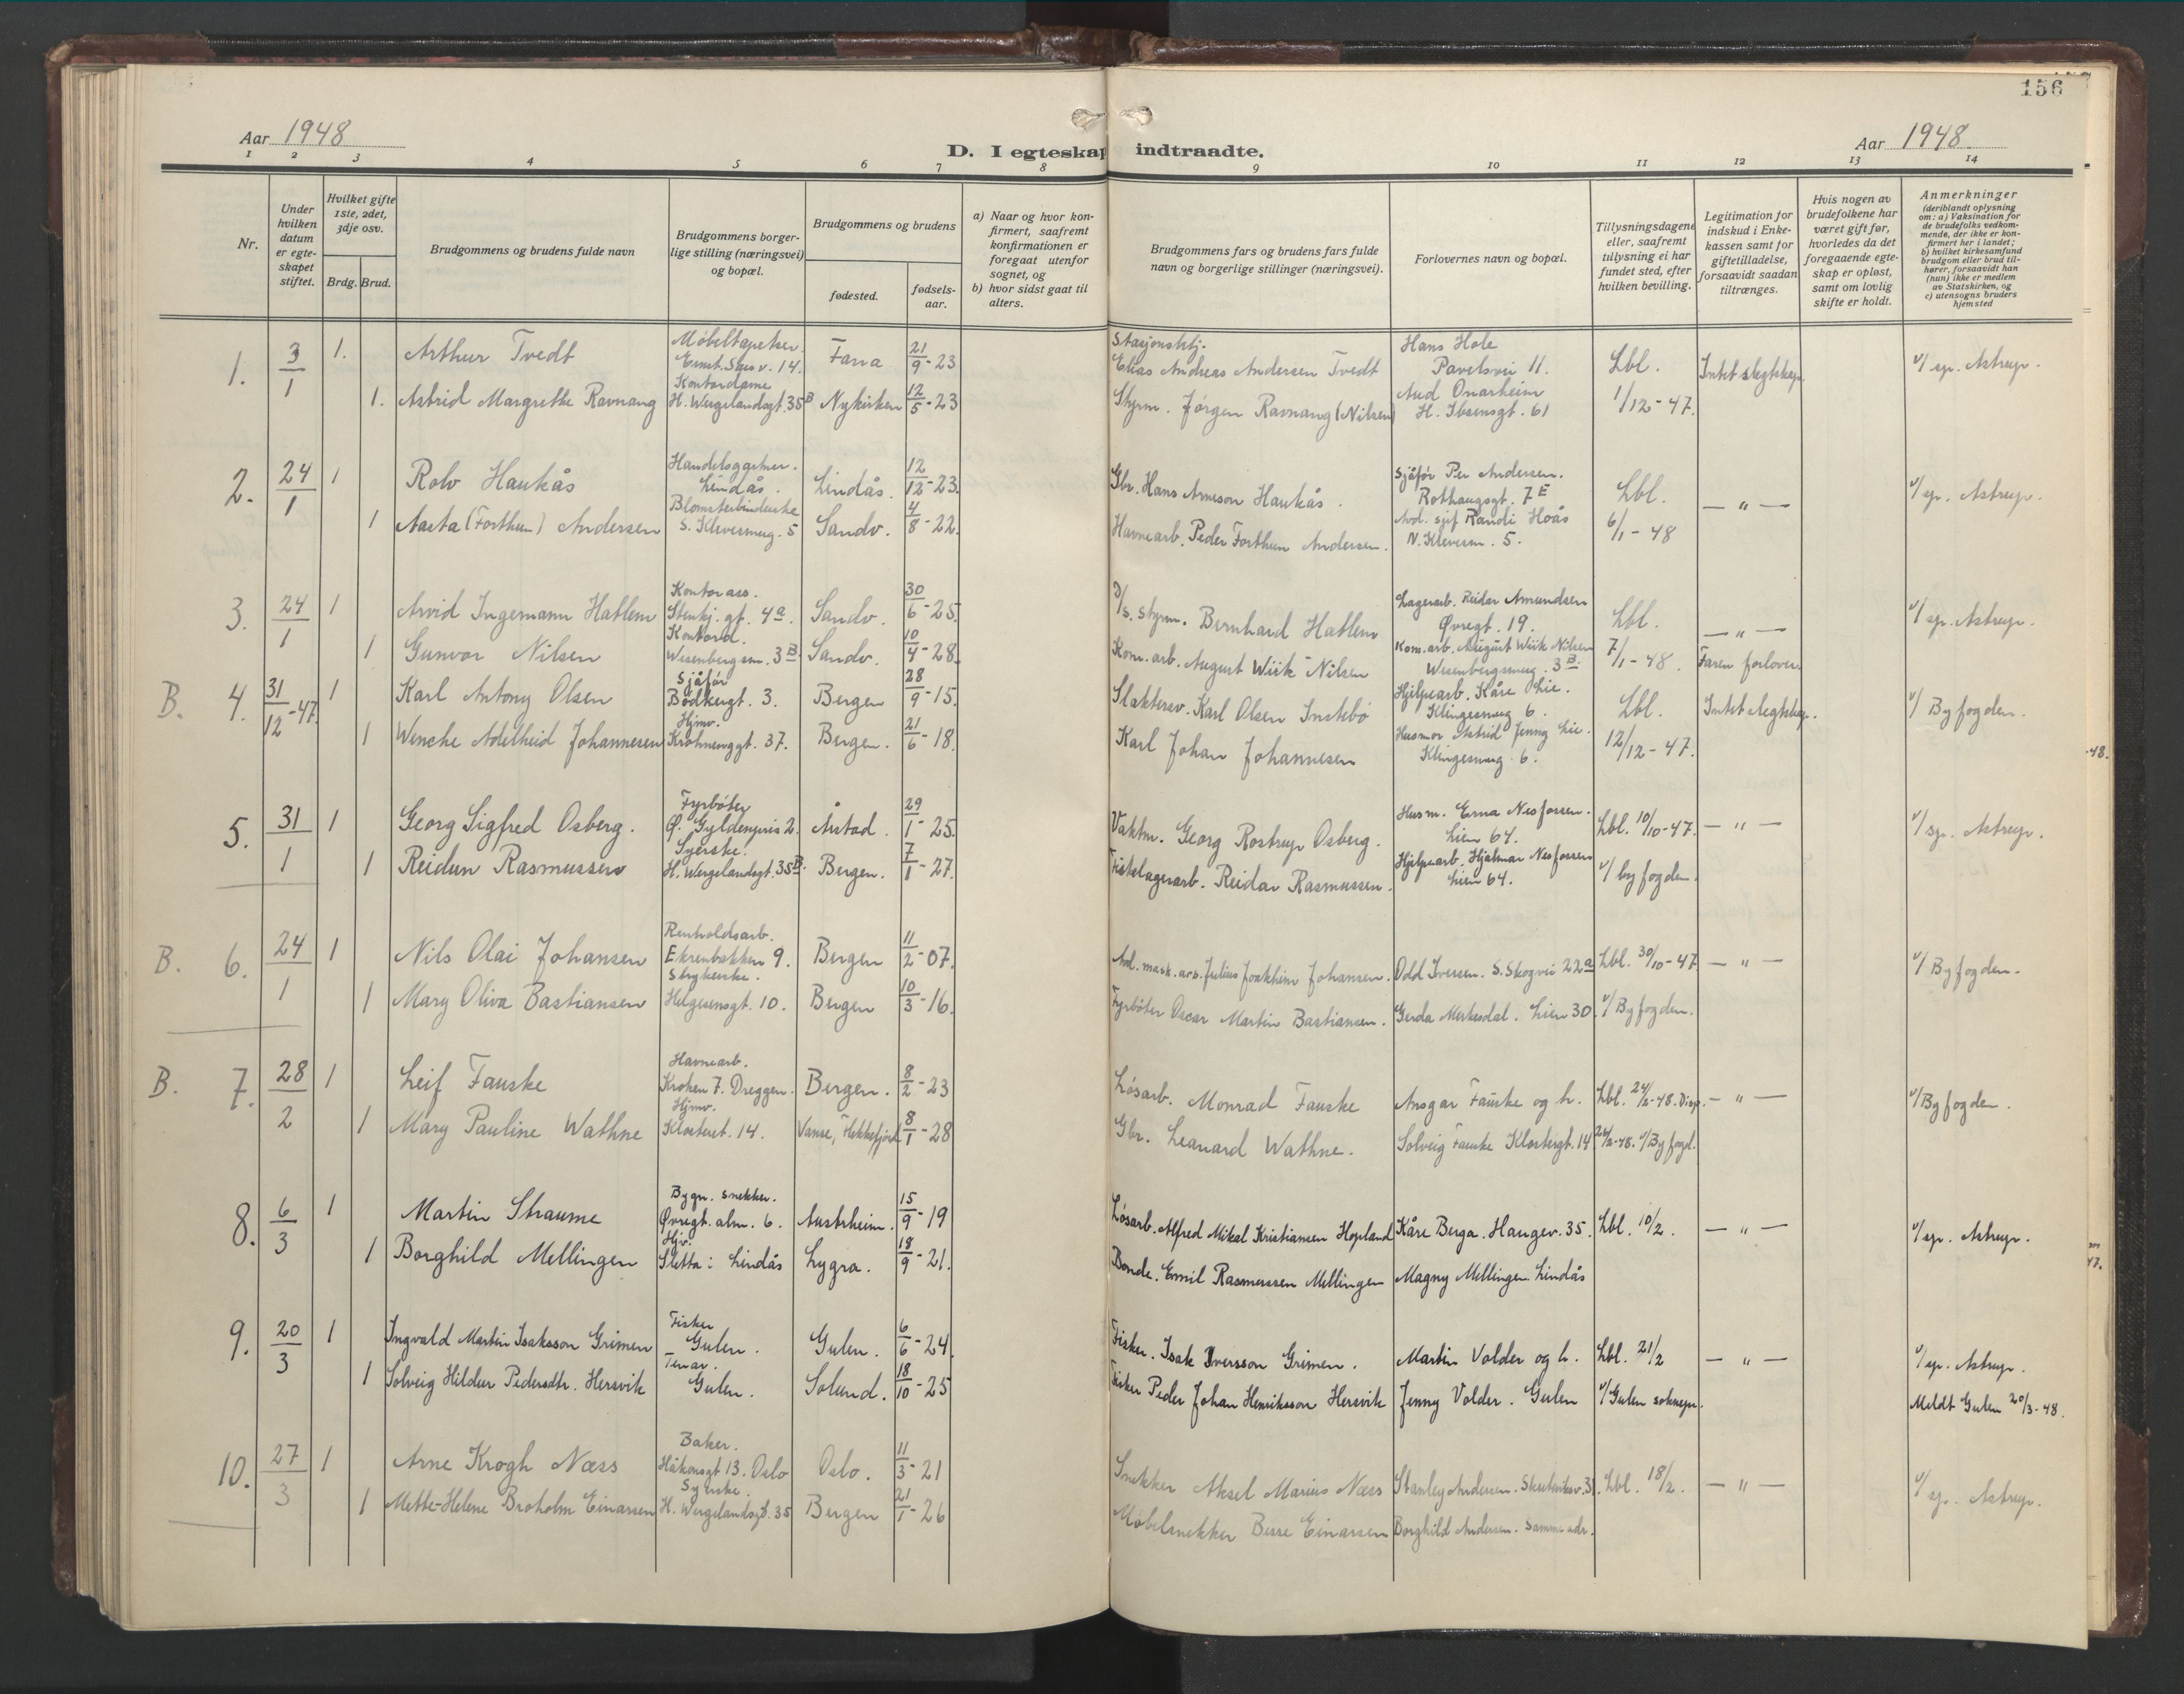 156
Aar 1948
D. I egteskap indtraadte.
Aar 1948.
1 2 3 4 5 6 7 8 9 10 11 12 13 14
Nr.
Under hvilken datum er egteskapet stiftet.
Hvilket gifte 1ste, 2det, 3dje osv.
Brdg. Brud.
Brudgommens og brudens fulde navn
Brudgommens borgerlige stilling (næringsvei) og bopæl.
Brudgommens og brudens
fødested.
fødselsaar.
a) Naar og hvor konfirmert, saafremt konfirmationen er foregaat utenfor sognet, og
b) hvor sidst gaat til alters.
Brudgommens fars og brudens fars fulde navn og borgerlige stillinger (næringsvei).
Forlovernes navn og bopæl.
Tillysningsdagene eller, saafremt tillysning ei har fundet sted, efter hvilken bevilling.
Legitimation for indskud i Enkekassen samt for giftetilladelse, forsaavidt saadan tiltrænges.
Hvis nogen av brudefolkene har været gift før, hvorledes da det foregaaende egteskap er opløst, samt om lovlig skifte er holdt.
Anmerkninger (deriblandt oplysning om: a) Vaksination for de brudefolks vedkommende, der ikke er konfirmert her i landet; b) hvilket kirkesamfund brudgom eller brud tilhører, forsaavidt han (hun) ikke er medlem av Statskirken, og c) utensogns bruders hjemsted
1. 3/1 1. Arthur Tvedt Møbeltapetser. Ernst. Shsv. 14. Fana 21/9-23 Stasjonsbtj. Elias Andreas Andersen Tvedt Hans Hole Pavelsvei 11. Lbl. Intet slegtskap. v/ sp. Astrup.
1. Astrid Margrethe Ravnang Kontordame H. Wergelandsgt. 35B Nykirken 12/5-23 Styrm. Jørgen Ravnang (Nilsen) Aud Onarheim H. Ibsensgt. 61 1/12-47.
2. 24/1 1 Rolv Haukås Handelsgartner. Lindås. Lindås. 12/12-23. Gbr. Hans Arneson Haukås. Sjåfør Per Andersen. Rothaugsgt. 7E Lbl. — " — v/ sp. Astrup.
1 Aasta (Forthun) Andersen Blomsterbinderske S. Kleversmug. 5 Sandv. 4/8-22. Havnearb. Peder Forthun Andersen. Randi Hoås N. Kleversm. 5. 6/1-48
3. 24/1 1 Arvid Ingemann Hatlem Kontorass. Stenkj. gt. 4a. Sandv. 30/6-25. D/s. styrm. Bernhard Hatlem Lagerarb. Reidar Amundsen Øvregt. 19. Lbl. — " — v/ sp. Astrup.
1 Gunvor Nilsen Kontord. Wesenbergsm. 3B. Sandv. 10/4-28. Kom. arb. August Wiik Nilsen Kom. arb. August Wiik Nilsen Wesenbergsmug. 3B. 7/1-48. Faren forlover.
B. 4. 31/12-47. 1 Karl Antony Olsen Sjåfør Bødkergt. 3. Bergen 28/9-15. Slaktersv. Karl Olsen Instebø Hjelpearb. Kåre Lie. Klingesmug 6. Lbl. Intet slegtskap. v/ Byfogden.
1 Wenche Adelheid Johannesen Hjmv. Krohnenggt. 37. Bergen. 21/6-18. Karl Johan Johannesen Husmor Astrid Jenny Lie. Klingesmug. 6. 12/12-47.
5. 31/1 1 Georg Sigfred Osberg. Fyrbøter Ø. Gyldenpris 2. Årstad. 29/1-25. Vaktm. Georg Rostrup Osberg. Husm. Erna Nesfossen. Lien 64. Lbl. 10/10-47. — " — v/ sp. Astrup.
1 Reidun Rasmussen Syerske. H. Wergelandsgt. 35B. Bergen. 7/1-27. Fiskelagerarb. Reidar Rasmussen. Hjelpearb. Hjalmar Nesfossen Lien 64. v/ byfogden.
B. 6. 24/1 1 Nils Olai Johansen Renholdsarb. Ekrenbakken 9. Bergen 11/2-07. Avd. mask. arb. Julius Joakheim Johansen. Odd Iversen. S. Skogvei 22a Lbl. 30/10-47 — " — v/ Byfogden.
1 Mary Oliva Bastiansen Strykerske. Helgesensgt. 10. Bergen 10/3-16. Fyrbøter Oscar Martin Bastiansen. Gerda Merkesdal. Lien 30. v/ Byfogden.
B. 7. 28/2 1 Leif Fauske Havnearb. Kroken 7. Dreggen. Bergen. 8/2-23 Løsarb. Monrad Fauske Ansgar Fauske og h. Lbl. 24/2-48. Disp. — " — v/ Byfogden.
1 Mary Pauline Wathne Hjmv. Klosteret. 14. Vanse, Flekkefjord 8/1-28 Gbr. Leonard Wathne. Solveig Fauske Klostergt. 14 24/2-48. v/ Byfogd.
8. 6/3 1 Martin Straume Bygn. snekker. Øvregt. alm. 6. Austrheim. 15/9-19 Løsarb. Alfred Mikal Kristiansen Hopland Kåre Berga. Haugev. 35. Lbl. 10/2. — " — v/ sp. Astrup.
1 Borghild Mellingen Hjv. Sletta i Lindås Lygra. 18/9-21. Bonde. Emil Rasmussen Mellingen Magny Mellingen Lindås
9. 20/3 1 Ingvald Martin Isaksson Grimen Fisker Gulen. Gulen. 6/6-24. Fisker. Isak Iversson Grimen. Martin Volder og h. Lbl. 21/2 — " — v/ sp. Astrup.
1 Solveig Hildur Pedersdtr. Hersvik Tenar. Gulen. Solund. 18/10-25 Fisker Peder Johan Henriksson Hersvik Jenny Volder. Gulen v/ Gulen soknepr. Meldt Gulen 20/3-48.
10. 27/3 1 Arne Krogh Næss Baker. Håkonsgt 13. Oslo Oslo. 11/3-21 Snekker Aksel Marius Næss Stanley Andersen. Lbl. 18/2. — " — v/ sp. Astrup.
1 Mette-Helene Broholm Einarsen Syerske. H. Wergelandsgt. 35 Bergen 21/1-26 Møbelsnekker Birre Einarsen Borghild Andersen. Samme adr.